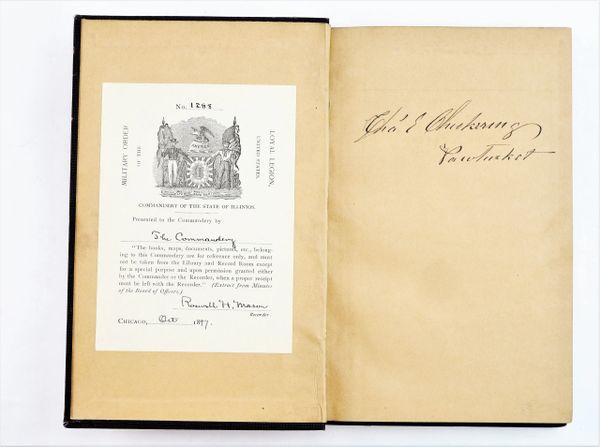 No. 1288
MILITARY ORDER
OF THE
LOYAL LEGION,
UNITED STATES.
COMMANDERY OF THE STATE OF ILLINOIS.
Presented to the Commandery by
The Commandery
"The books, maps, documents, pictures, etc., belong-
ing to this Commandery are for reference only, and must
not be taken from the Library and Record Room except
for a special purpose and upon permission granted either
by the Commander or the Recorder, when a proper receipt
must be left with the Recorder." (Extract from Minutes
of the Board of Officers.)
Roswell H. Mason
Recorder.
CHICAGO, Oct 1897.
Chas E Chickering
Pawtucket